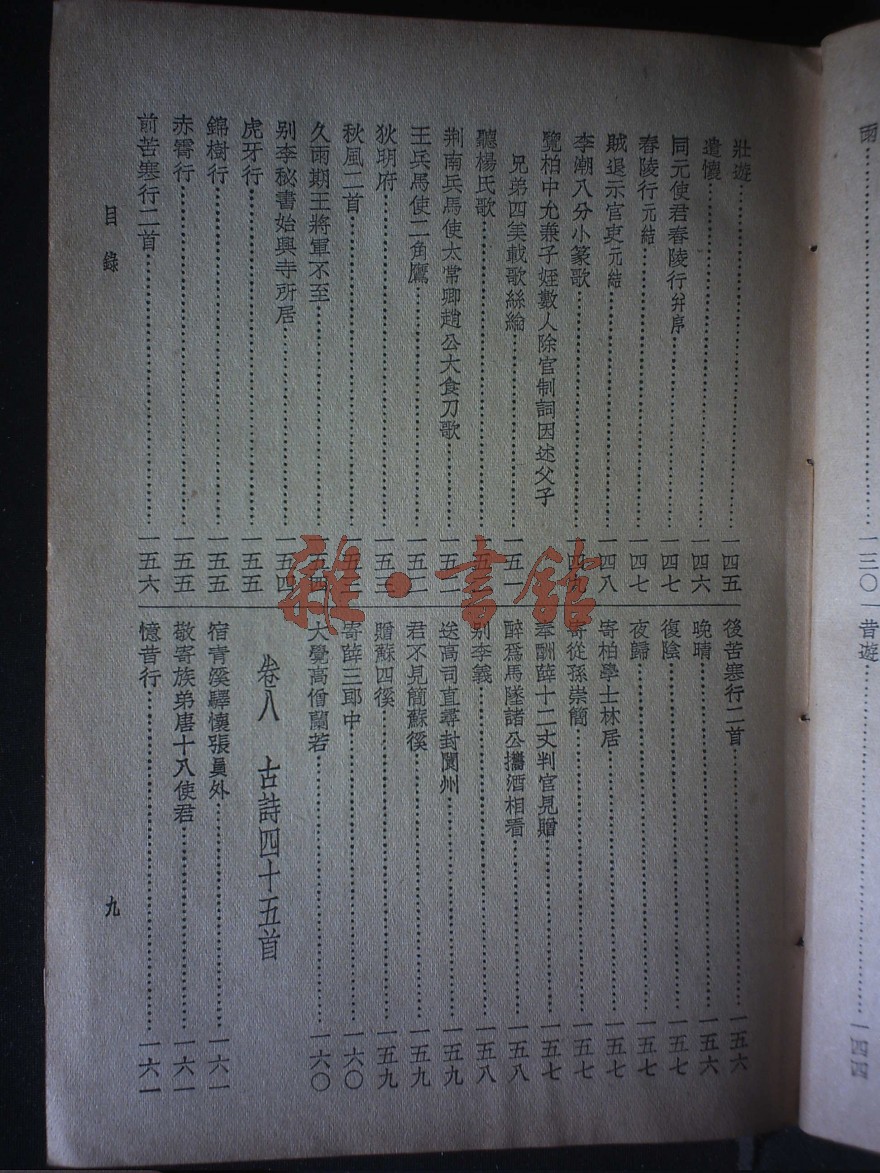 壯遊 一四五
遣懷 一四六
同元使君舂陵行幷序 一四七
舂陵行元結 一四七
賊退示官吏元結 一四八
李潮八分小篆歌 一四九
覽柏中允兼子姪數人除官制詞因述父子
兄弟四美載歌絲綸 一五一
聽楊氏歌 一五一
荆南兵馬使太常卿趙公大食刀歌 一五二
王兵馬使二角鷹 一五二
狄明府 一五三
秋風二首 一五三
久雨期王將軍不至 一五四
别李秘書始興寺所居 一五四
虎牙行 一五五
錦樹行 一五五
赤霄行 一五五
前苦寒行二首 一五六
後苦寒行二首 一五六
晚晴 一五六
復陰 一五七
夜歸 一五七
寄柏學士林居 一五七
寄從孫崇簡 一五七
奉酬薛十二丈判官見贈 一五七
醉爲馬墜諸公攜酒相看 一五八
别李義 一五八
送高司直尋封閬州 一五九
君不見簡蘇徯 一五九
贈蘇四徯 一五九
寄薛三郎中 一六〇
大覺高僧蘭若 一六〇
卷八 古詩四十五首
宿青溪驛懷張員外 一六一
敬寄族弟唐十八使君 一六一
憶昔行 一六一
目錄
九
雨
一三〇
昔遊
一四四
雜·書館